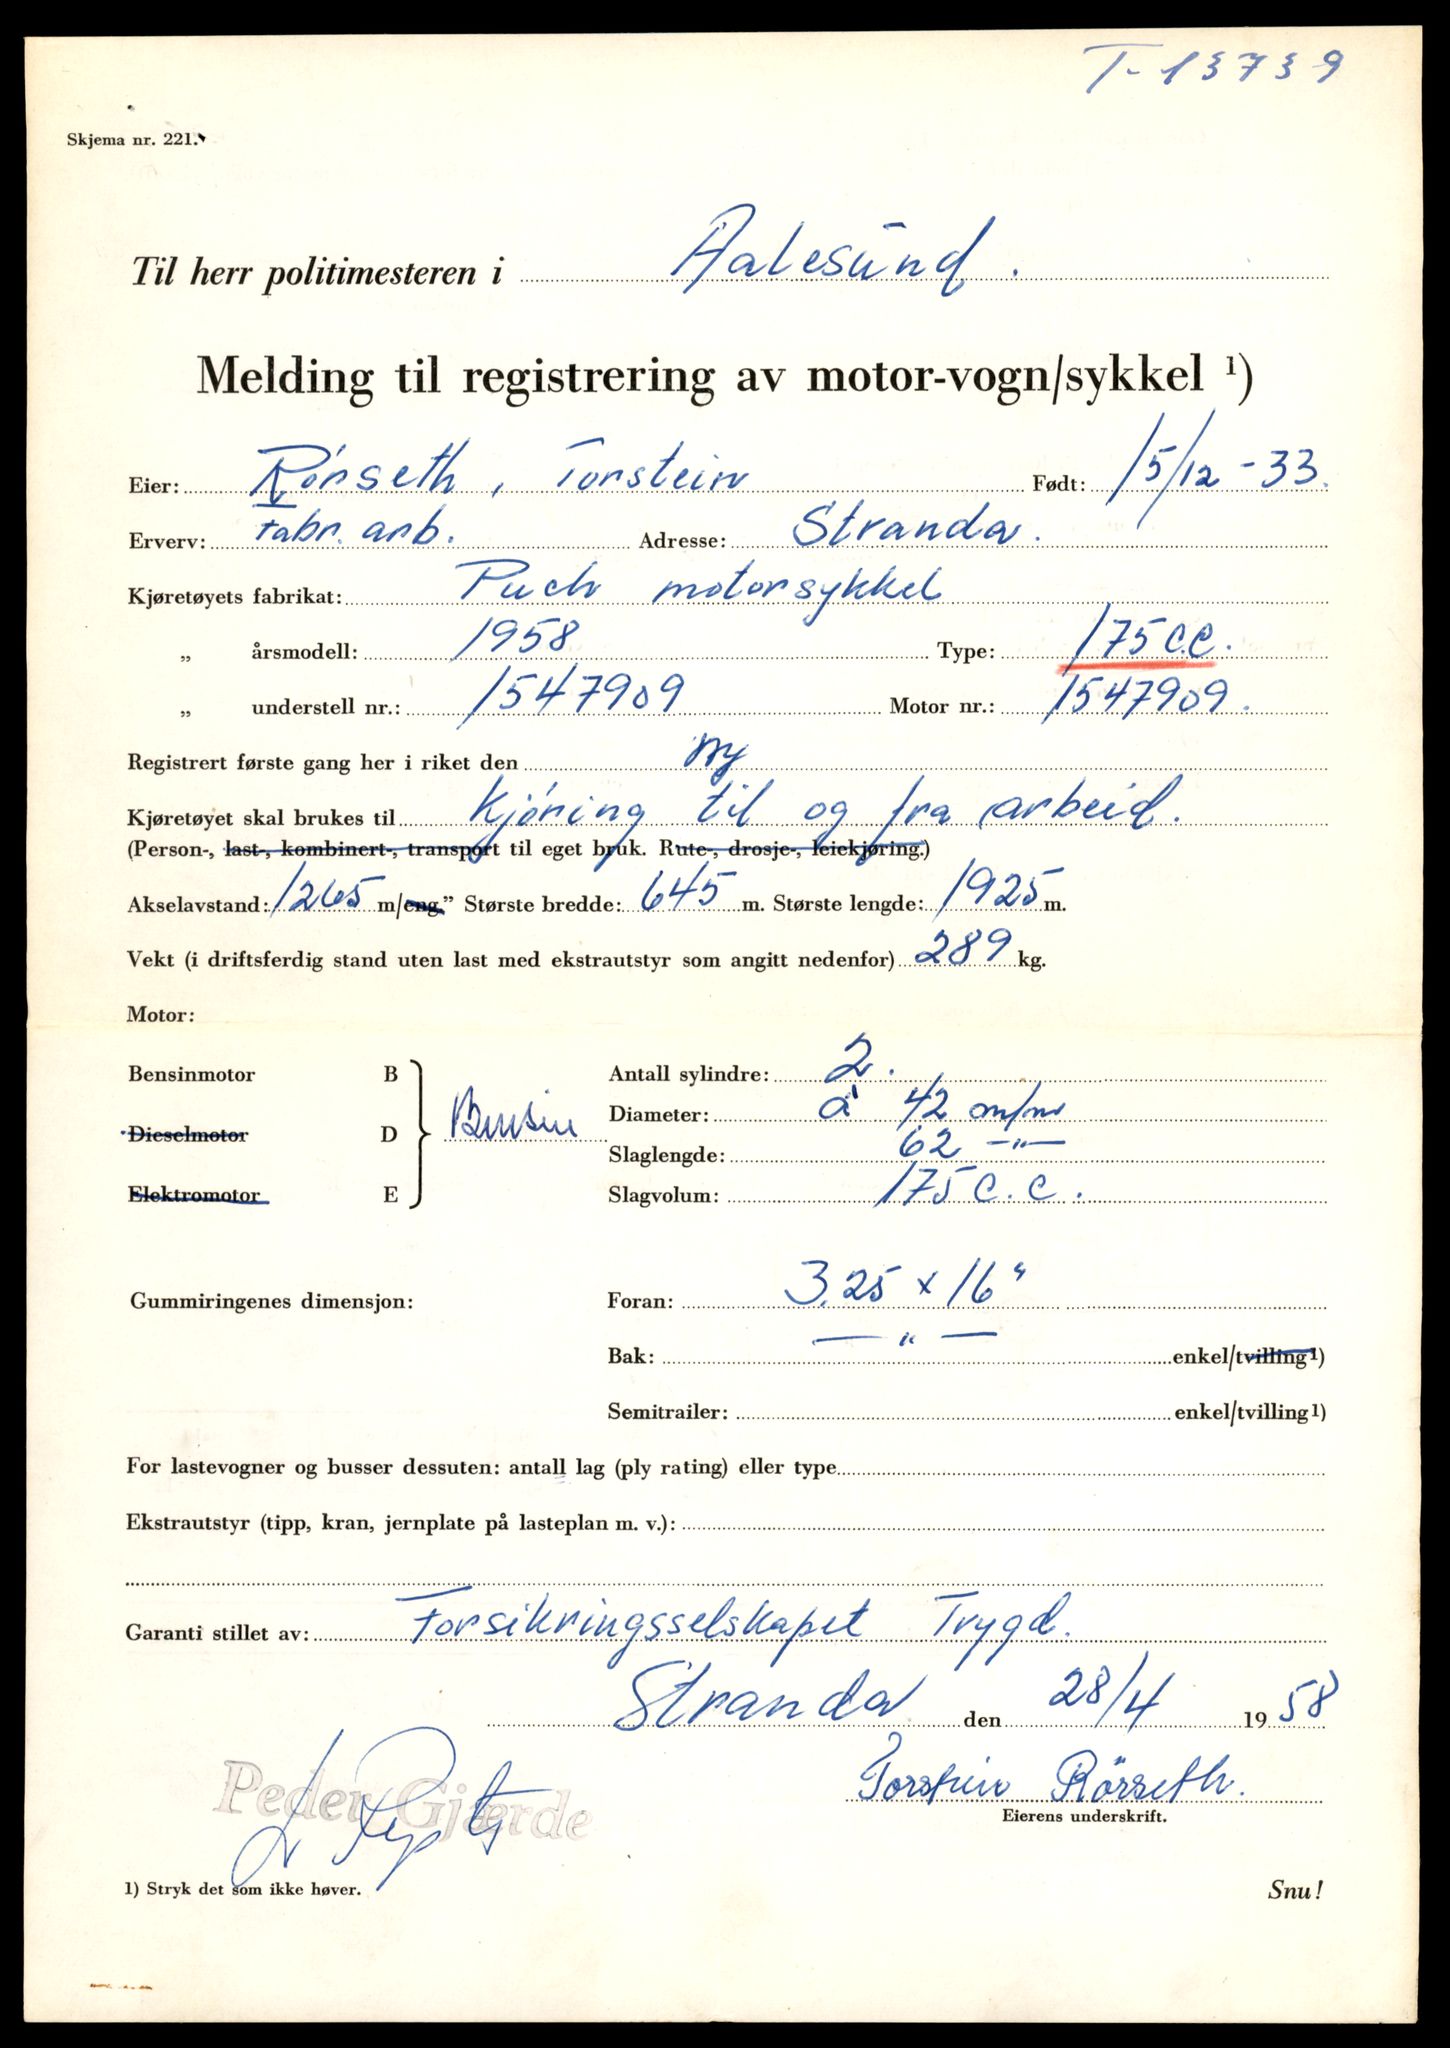 T-13739
Skjema nr. 221.
Til herr politimesteren i Aalesund.
Melding til registrering av motor-vogn/sykkel 1)
Eier: Rørseth, Torstein Født: 15/12-33.
Erverv: Fabr. arb. Adresse: Stranda.
Kjøretøyets fabrikat: Puch motorsykkel
„ årsmodell: 1958 Type: 175 c.c.
„ understell nr.: 1547909 Motor nr.: 1547909.
Registrert første gang her i riket den ny
Kjøretøyet skal brukes til Kjøring til og fra arbeid.
(Person-, last-, kombinert-, transport til eget bruk. Rute-, drosje-, leiekjøring.)
Akselavstand: 1265 m/eng.” Største bredde: 645 m. Største lengde: 1925 m.
Vekt (i driftsferdig stand uten last med ekstrautstyr som angitt nedenfor) 289 kg.
Motor:
Bensinmotor B Antall sylindre: 2.
Diameter: à 42 m/m
Dieselmotor D Bensin
Slaglengde: 62 —„—
Elektromotor E Slagvolum: 175 c.c.
Gummiringenes dimensjon: Foran: 3.25 x 16"
Bak: —„— enkel/tvilling1)
Semitrailer: enkel/tvilling1)
For lastevogner og busser dessuten: antall lag (ply rating) eller type
Ekstrautstyr (tipp, kran, jernplate på lasteplan m. v.):
Garanti stillet av: Forsikringsselskapet Trygd.
Stranda den 28/4 1958
Peder Gjærde
Torstein Rörseth.
Eierens underskrift.
1) Stryk det som ikke høver.
Snu!